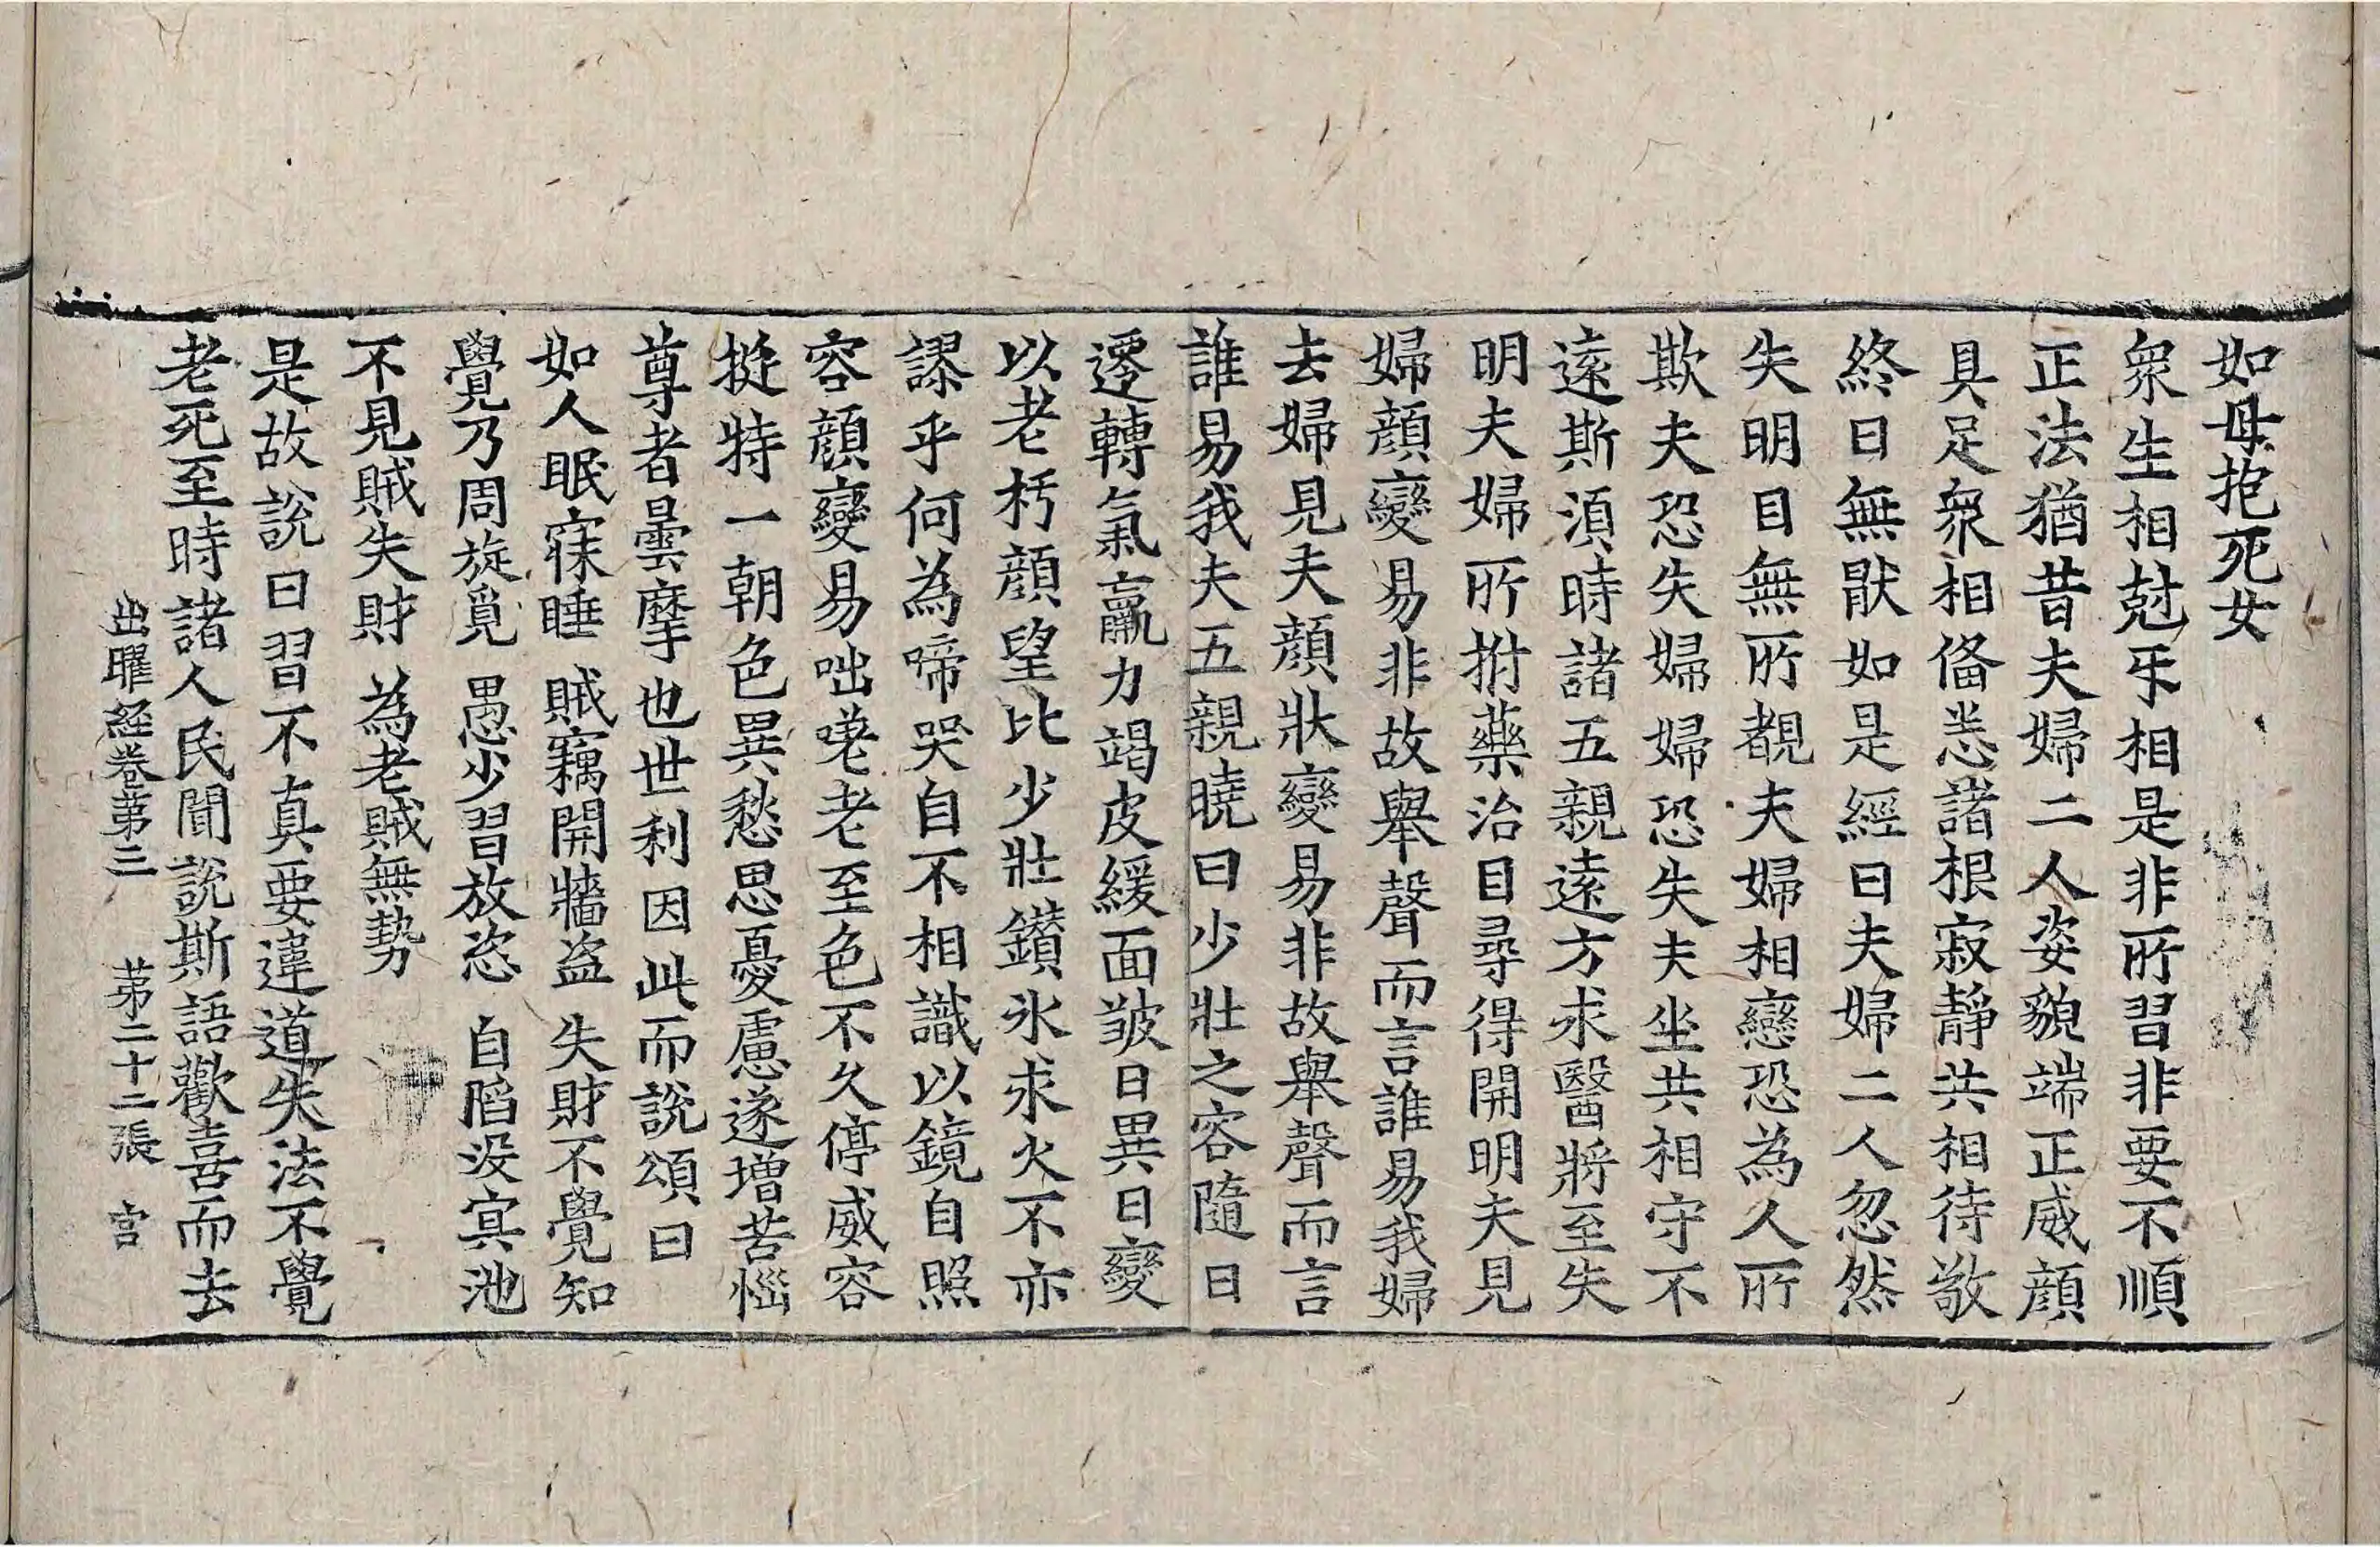 如母抱死女
衆生相尅乐相是非所習非要不順
正法猶昔夫婦二人姿貌端正威顔
具足衆相俻恙諸根寂靜共相待敬
終日無猒如是經日夫婦二人忽然
失明目無所覩夫婦相戀恐為人所
欺夫恐失婦婦恐失夫坐共相守不
遠斯湏時諸五親遠方求醫將至失
明夫婦所拊藥治目尋得開明夫見
婦顔變易非故舉聲而言誰易我婦
去婦見夫顔狀變易非故舉聲而言
誰易我夫五親曉曰少壯之容隨日
遷轉氣羸力竭皮緩面皺日異日變
以老朽顔望比少壯鑚氷求火不亦
謬乎何為啼哭自不相識以鏡自照
容顔變易咄嗟老至色不久停威容
挺特一朝色異愁思憂慮遂增苦惱
尊者曇摩世利因此而說頌曰
如人眠寐睡 賊竊開牆盗 失財不覺知
覺乃周旋覓 愚少習放恣 自陷没㝠池
不見賊失財 為老賊無勢
是故說曰習不真要違道失法不覺
老死至時諸人民聞說斯語歡喜而去
出曜経卷第三 苐二十二張 宫